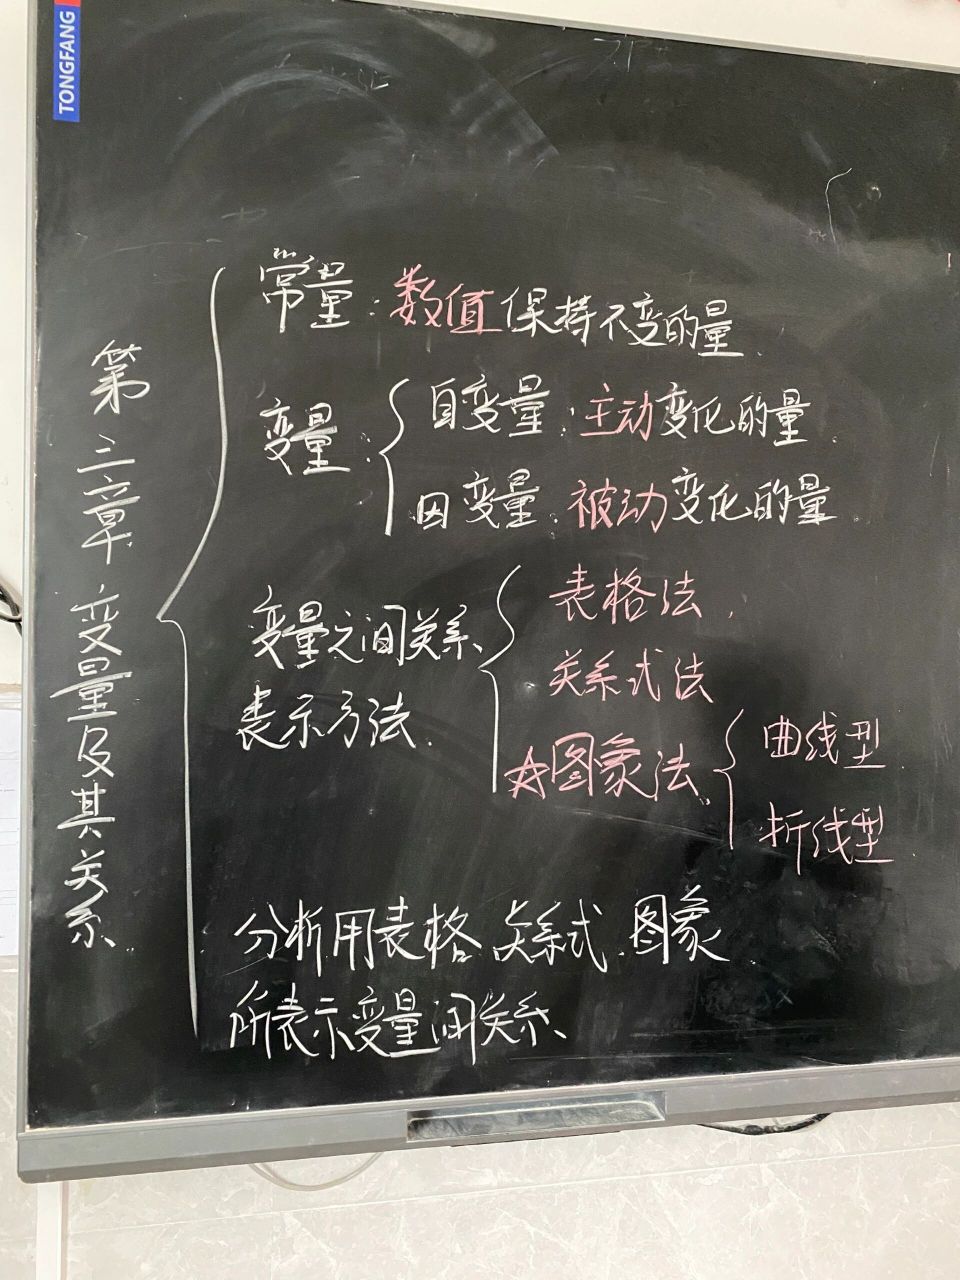 TONGFANG
第三章 变量及其关系
常量:数值保持不变的量.
变量:
自变量:主动变化的量.
因变量:被动变化的量
变量之间关系、
表示方法.
表格法,
关系式法
☆图象法、
曲线型
折线型
分析用表格、关系式、图象
所表示变量间关系、